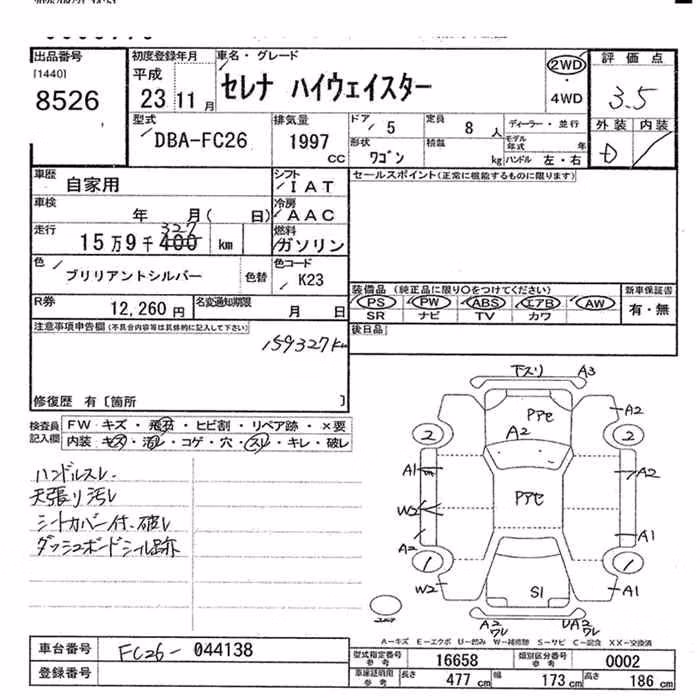 出品番号
[1440]
8526
初度登録年月
平成
23 11 月
車名・グレード
セレナ ハイウェイスター
2WD
・
4WD
評価点
3.5
外装 内装
D
型式
DBA-FC26
排気量
1997
CC
ドア
5
定員
8 人
ディーラー・並行
モデル年式 年
形状
ワゴン
積載
kg
ハンドル 左・右
車歴
自家用
シフト
IAT
セールスポイント(正常に機能するものに限ります)
車検
年 月( 日)
冷房
AAC
走行
327
15万9千400 km
燃料
ガソリン
色
ブリリアントシルバー
色替
色コード
K23
装備品 (純正品に限り○をつけてください)
新車保証書
PS PW ABS エアB AW
有・無
SR ナビ TV カワ
R券
12,260 円
名変通知期限
月 日
後日品
注意事項申告欄(不具合内容等は具体的に記入して下さい)
159327km
修復歴 有〔箇所 〕
検査員記入欄
FW キズ・飛石・ヒビ割・リペア跡・×要
内装 キズ・汚レ・コゲ・穴・スレ・キレ・破レ
ハンドルスレ
天張り汚レ
シートカバー付.破レ
ダッシュボードシール跡
下スリ A3
アセ
A2
A2
2 2
A1
A2
アセ
W2
A2
A1
1 1
W2
S1
A1
A2
ワレ
UA2
ワレ
A−キズ E−エクボ U−凹み W−補修跡 S−サビ C−腐食 XX−交換済
車台番号
FC26-044138
登録番号
型式指定番号
参考
16658
類別区分番号
参考
0002
車庫証明用
参考
長さ
477 cm
幅
173 cm
高さ
186 cm